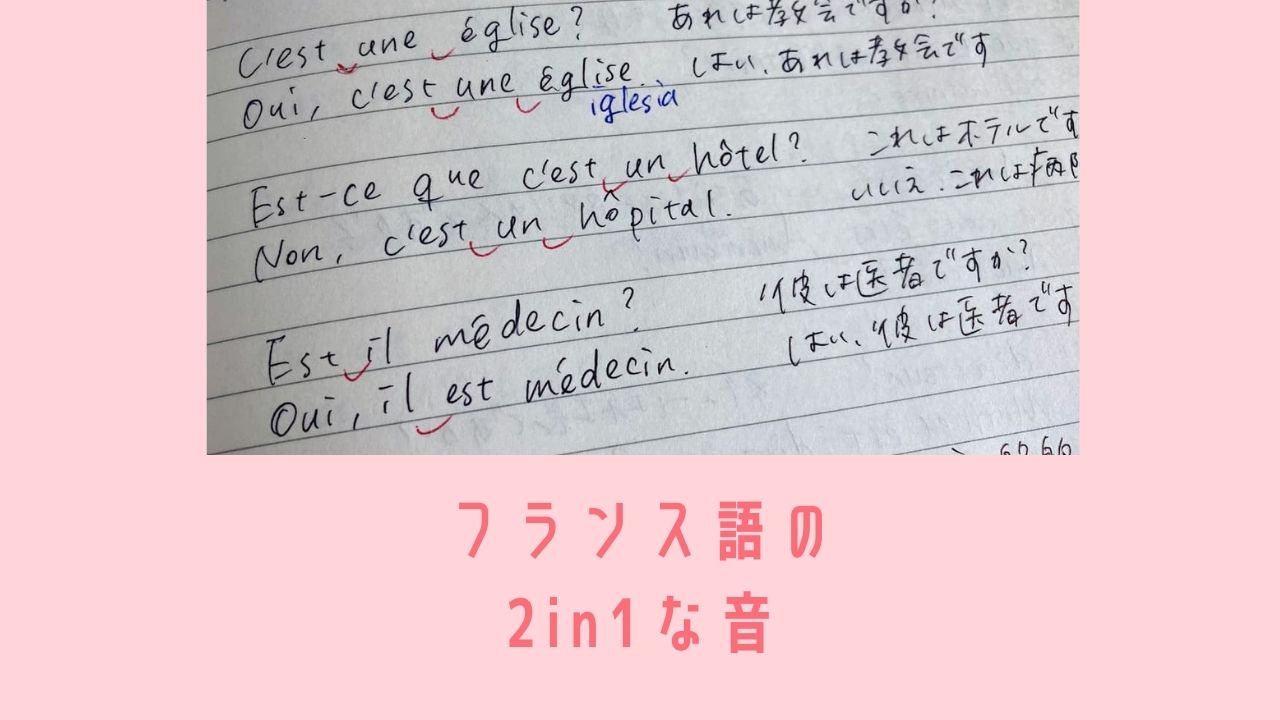 C'est une église? あれは教会ですか?
Oui, c'est une église. はい、あれは教会です
iglesia
Est-ce que c'est un hôtel? これはホテルです
Non, c'est un hôpital. いいえ、これは病
Est il médecin? 彼は医者ですか?
Oui, il est médecin. はい、彼は医者です
フランス語の
2in1な音